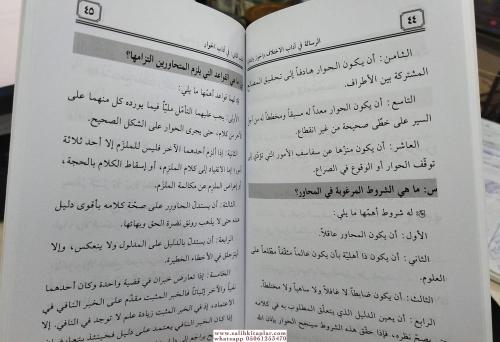 ٤٤
الرسالة في آداب الاختلاف والحوار
الثامن: أن يكون الحوار هادفاً إلى تحقيق المصالح
المشتركة بين الأطراف.
التاسع: أن يكون الحوار معداً له مسبقاً ومخططاً له من أجل
السير على خطى صحيحة من غير انقطاع.
العاشر: أن يكون منزّهاً عن سفاسف الأمور التي تؤدّي إلى
توقّف الحوار أو الوقوع في الصراع.
س: ما هي الشروط المرغوبة في المحاور؟
له شروط أهمّها ما يلي:
الأول: أن يكون المحاور عاقلاً.
الثاني: أن يكون ذا أهليّة بأن يكون عالماً مثقفاً مطلعاً على
العلوم.
الثالث: أن يكون ضابطاً لا غافلاً ولا ساهياً ولا مختلطاً.
الرابع: أن يعين الدليل الذي يتعلّق المطلوب به في كلامه
يصحّ نظره، فإذا حقّق هذه الشروط سينجح الحوار بإذن الله
٤٥
في آداب الحوار
هي القواعد التي يلزم المتحاورين التزامها؟
لهما قواعد أهمّها ما يلي:
الأولى: يجب عليهما التأمّل مليّاً فيما يورده كل منهما على
الآخر من كلام، حتى يجري الحوار على الشكل الصحيح.
الثانية: إذا ألزم أحدهما الآخر فليس للملزَم إلا أحد ثلاثة
أمور: إما الانقياد إلى كلام الملزِم، أو إسقاط الكلام بالحجة،
أو إعراض الملزم عن مكالمة الملزم.
الثالثة: أن يستدلّ المحاور على صحّة كلامه بأقوى دليل
عنده حتى لا يذهب رونق نضرة الحق وبهائها.
الرابعة: أن يستدلّ بالدليل على المدلول ولا ينعكس، وإلا
في الأخطاء الخطيرة.
الخامسة: إذا تعارض خبران في قضية واحدة وكان أحدهما
نفياً والآخر إثباتاً فالخبر المثبت مقدّم على الخبر النافي في
الاعتماد؛ إذ في الخبر المثبت زيادة علم لا توجد في النافي، وإلا
www.salihkitaplar.com
whatsapp 05061253470